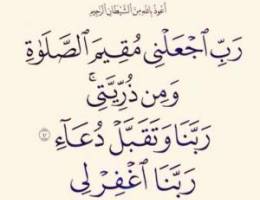 أعوذ بالله من الشيطان الرجيم
رَبِّ ٱجْعَلْنِى مُقِيمَ ٱلصَّلَوٰةِ
وَمِن ذُرِّيَّتِى ۚ
رَبَّنَا وَتَقَبَّلْ دُعَآءِ ۝٤٠
رَبَّنَا ٱغْفِرْ لِى